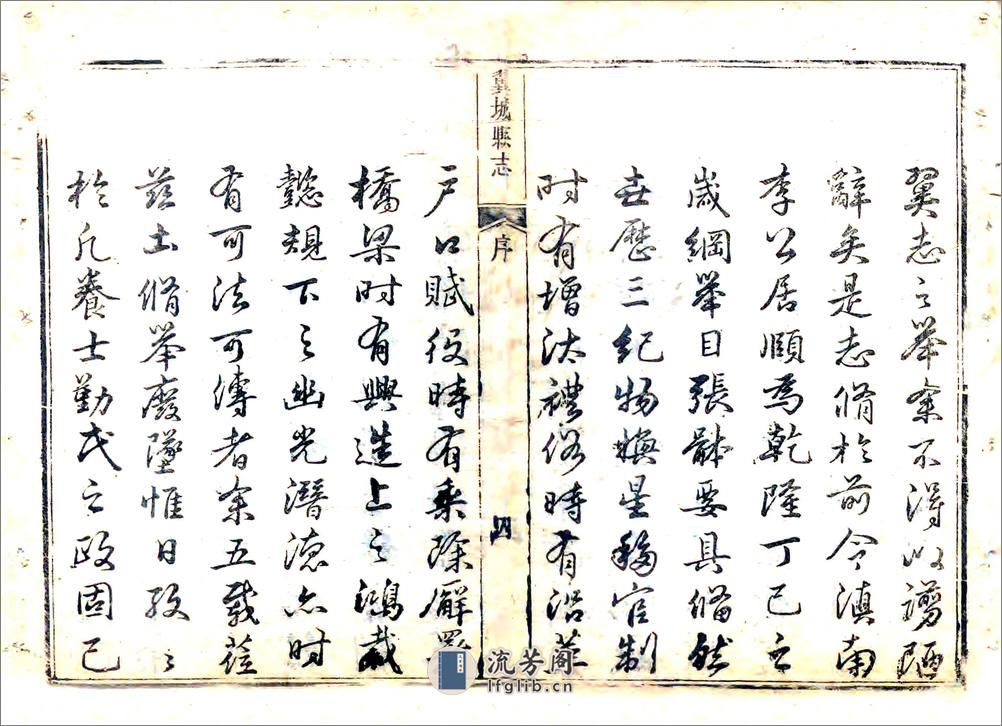 翼志之舉余不得以謭陋
辭矣是志脩於前令滇南
李公居頤為乾隆丁巳之
歲綱舉目張體要具備然
世歷三紀物換星移官制
時有增汰禮俗時有沿革
翼城縣志
序
四
戶口賦役時有乘除廨署
橋梁時有興造上之鴻裁
懿規下之幽光潛德亦時
有可法可傳者余五載蒞
茲土脩舉廢墜惟日孜〻
於凡養士勤民之政固已
流芳阁
lfglib.cn